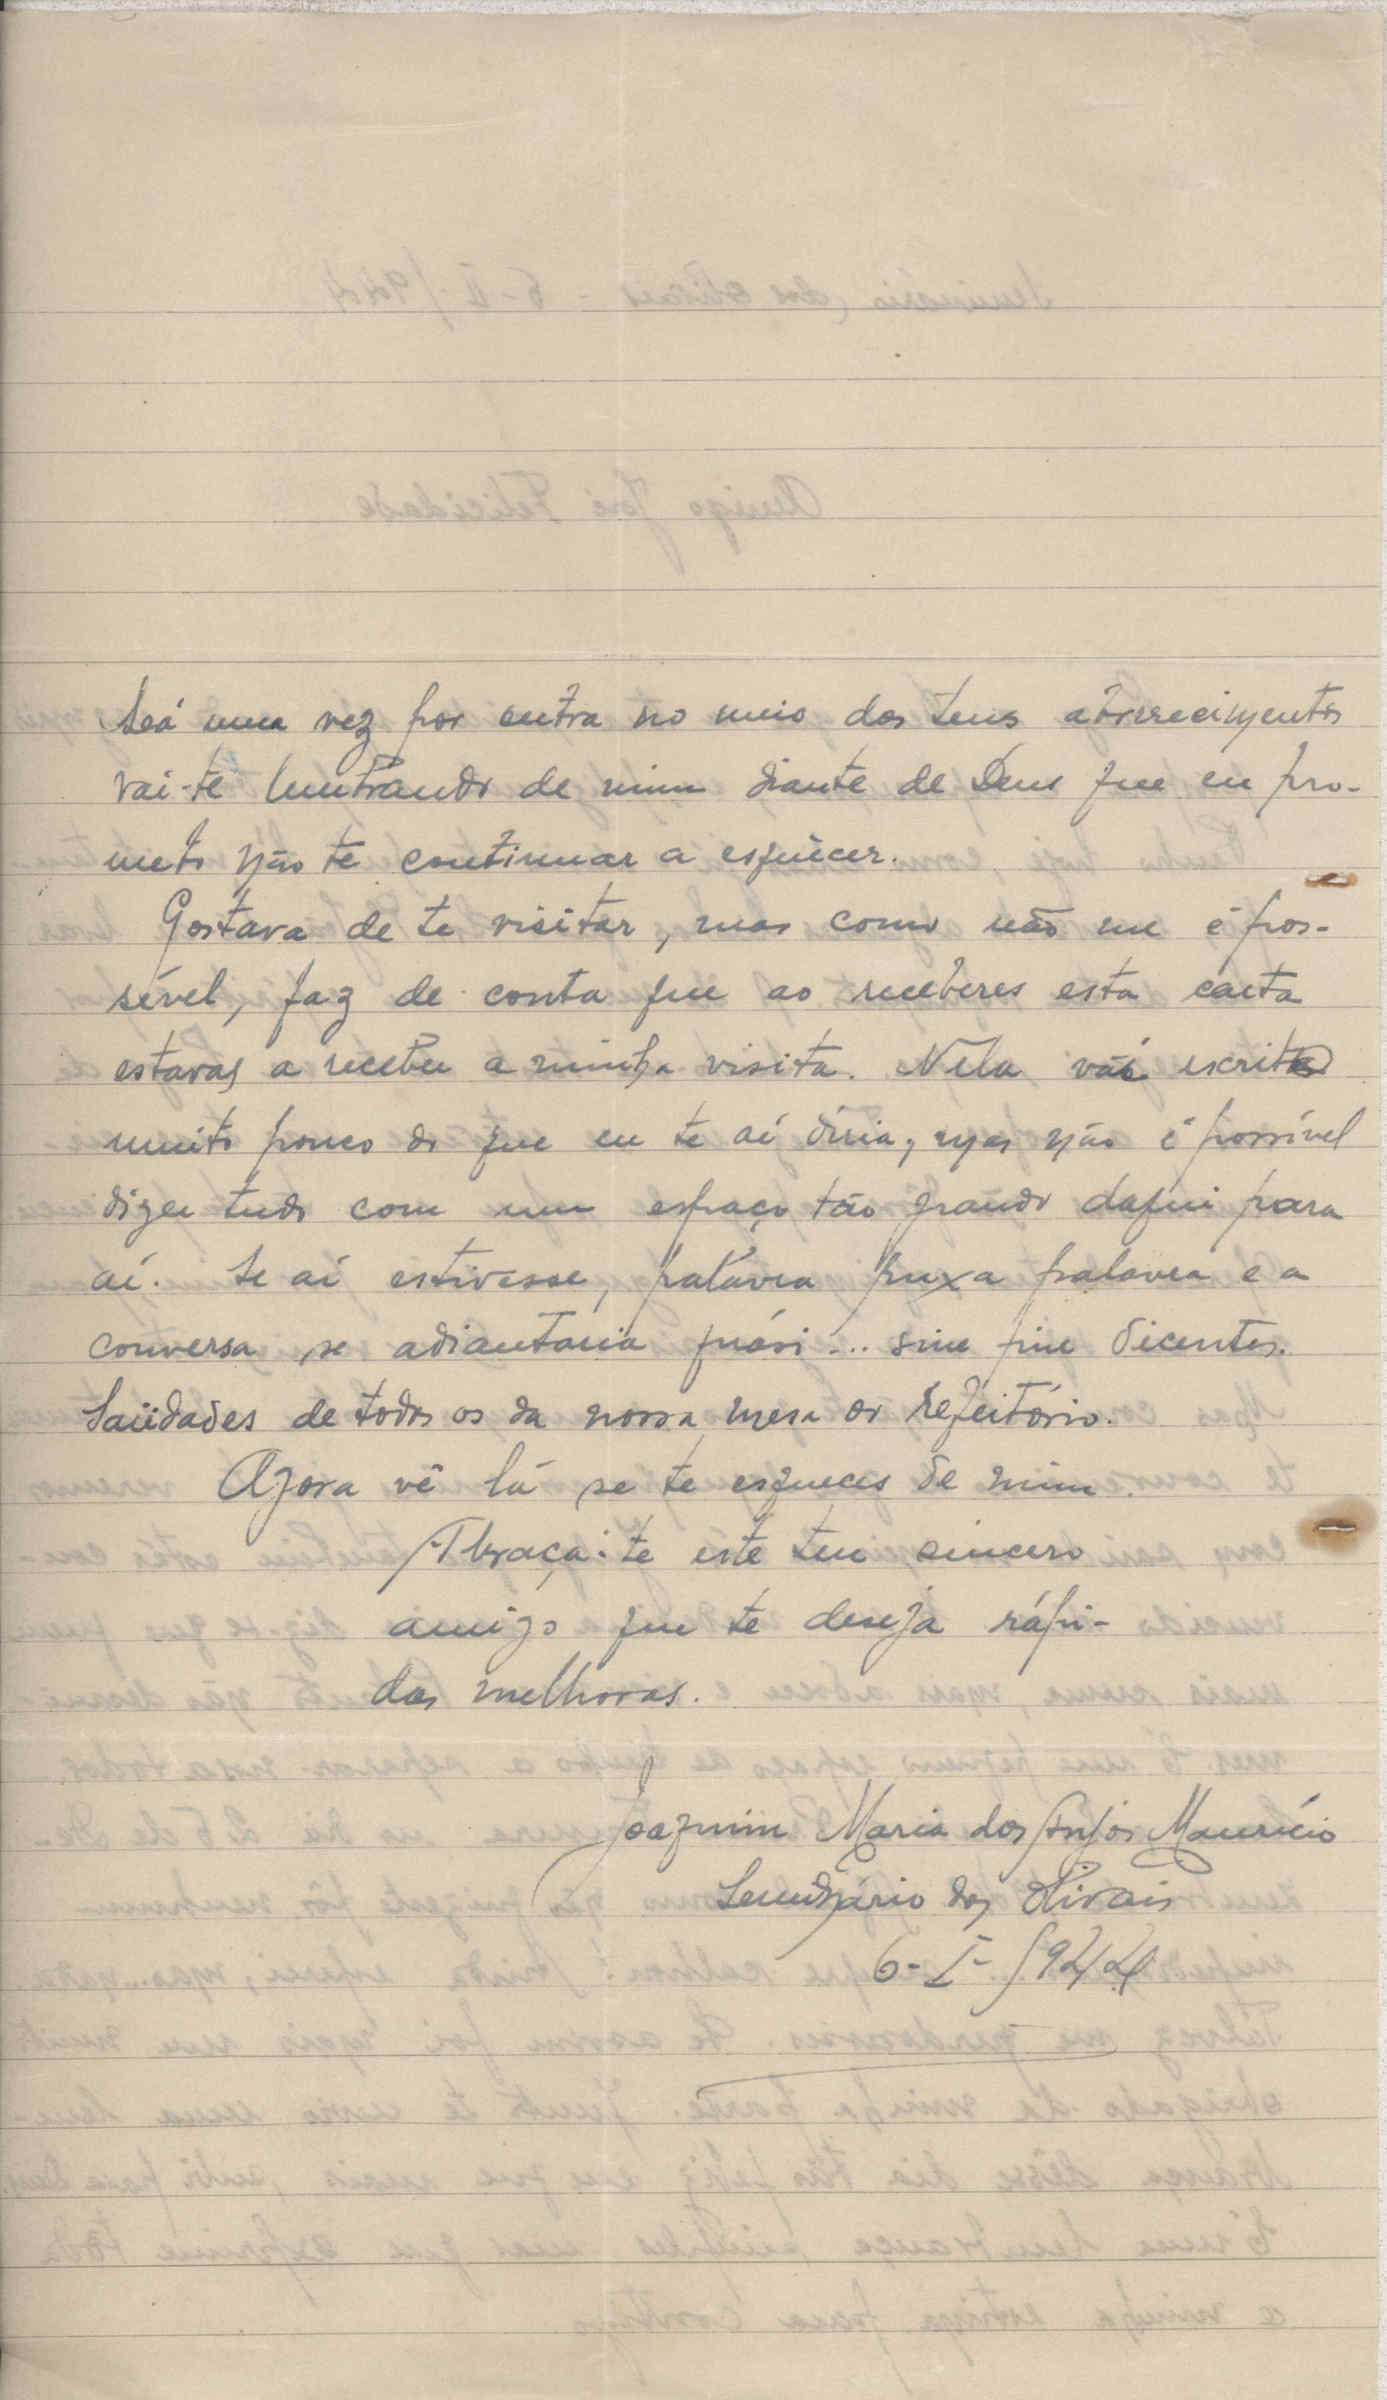 uma vez por outra no meio dos teus aborrecimentos
vai-te lembrando de mim diante de Deus que eu pro-
meto não te continuar a esquecer.
Gostava de te visitar, mas como não me é pos-
sível, faz de conta que ao receberes esta carta
estavas a receber a minha visita. Nela vai escrito
muito pouco do que eu te aí diria, mas não é possível
dizer tudo com um espaço tão grande daqui para
aí. Se aí estivesse, palavra puxa palavra e a
conversa se adiantaria quási... sine fine dicentes.
Saüdades de todos os da nossa mesa do refeitório.
Agora vê lá se te esqueces de mim.
Abraça-te este teu sincero
amigo que te deseja rápi-
das melhoras.
Joaquim Maria dos Anjos Maurício
Seminário dos Olivais
6-I-1944